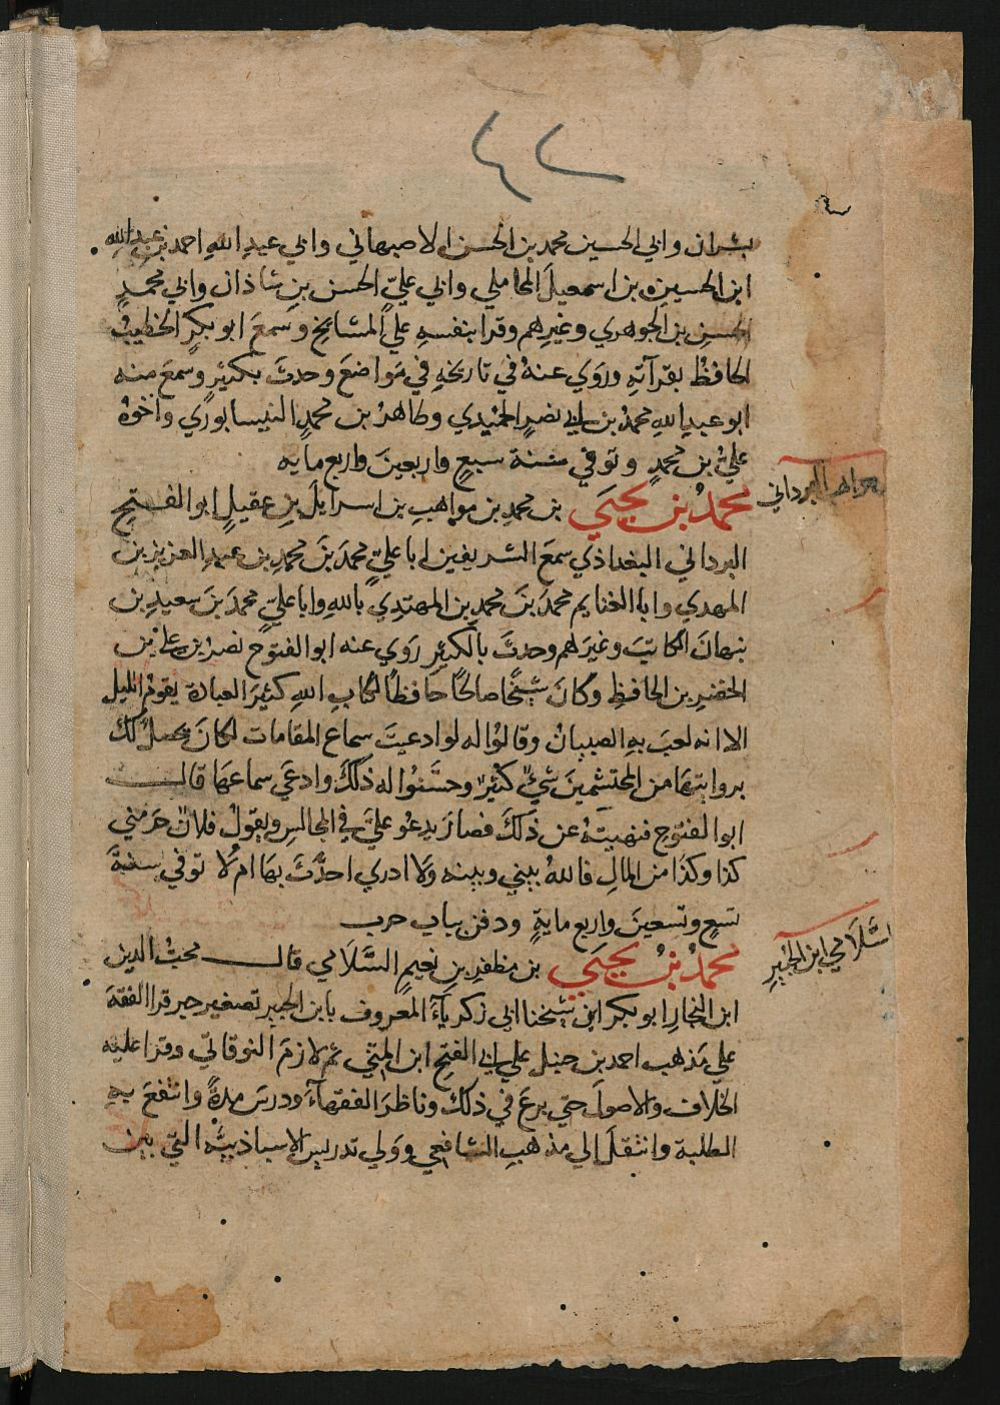 بشران وابي الحسين محمد بن الحسن الاصبهاني وابي عبد الله احمد بن عبد الله
ابن الحسين بن اسمعيل المحاملي وابي علي الحسن بن شاذان وابي محمد
الحسن بن الجوهري وغيرهم وقرا بنفسه علي المشايخ وسمع ابو بكر الخطيب
الحافظ بقرآته وروي عنه في تاريخه في مواضع وحدث بكثير وسمع منه
ابو عبد الله محمد بن ابي نصر الحميدي وطاهر بن محمد النيسابوري واخوه
علي بن محمد وتوفي سنة سبع واربعين واربع مايه
البرداني
محمد بن يحيي بن محمد بن مواهب بن اسرايل بن عقيل ابو الفتح
البرداني البغداذي سمع الشريفين ابا علي محمد بن محمد بن عبد العزيز بن
المهدي وابا الغنايم محمد بن محمد بن المهتدي بالله وابا علي محمد بن سعيد بن
نبهان الكاتب وغيرهم وحدث بالكثير روي عنه ابو الفتوح نصر بن علي بن
الخضر بن الحافظ وكان شيخا صالحا حافظا لكتاب الله كثير العبادة يقوم الليل
الا انه لعب به الصبيان وقالوا له لو ادعيت سماع المقامات لكان يحصل لك
بروايتها من المحتشمين شيء كثير وحسنوا له ذلك وادعي سماعها قال
ابو الفتوح فنهيته عن ذلك فصار يدعو علي في المجالس ويقول فلان حرمني
كذا وكذا من المال فالله بيني وبينه ولا ادري احدث بها ام لا توفي سنة
تسع وتسعين واربع ماية ودفن بباب حرب
السلامي ابن الحبير
محمد بن يحيي بن مظفر بن نعيم السلامي قال محب الدين
ابن النجار ابو بكر ابن شيخنا ابي زكرياء المعروف بابن الحبير تصغير حبر قرا الفقه
علي مذهب احمد بن حنبل علي ابي الفتح ابن المني ثم لازم النوقاني وقرا عليه
الخلاف والاصول حتي برع في ذلك وناظر الفقهاء ودرس مدة وانتفع به
الطلبة وانتقل الي مذهب الشافعي وولي تدريس الاسباذيه التي بين